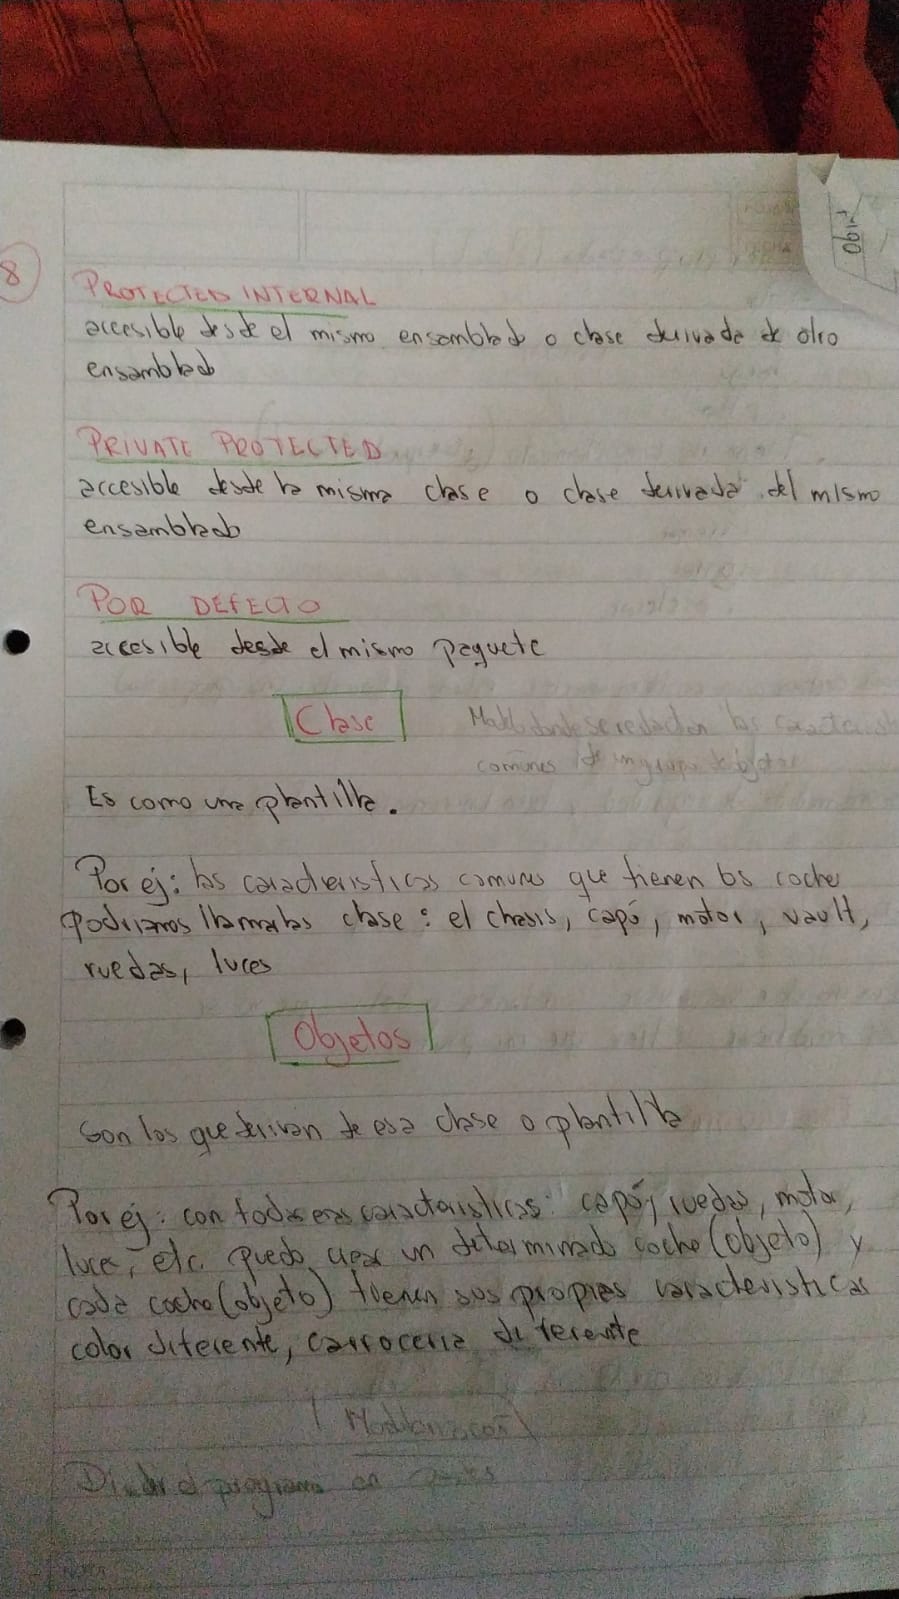 8
Objet
PROTECTED INTERNAL
accesible desde el mismo ensamblado o clase derivada de otro
ensamblado
PRIVATE PROTECTED
accesible desde la misma clase o clase derivada del mismo
ensamblado
POR DEFECTO
accesible desde el mismo paquete
Clase
donde se redactan las
comunes de un grupo de objetos
Es como una plantilla.
Por ej: las caracteristicas comunes que tienen los coche
podriamos llamarlas clase: el chasis, capó, motor, vault,
ruedas, luces
Objetos
Son los que derivan de esa clase o plantilla
Por ej: con todas esas caracteristicas: capó, ruedas, motor,
luce, etc. puedo crear un determinado coche (objeto) y
cada coche (objeto) tienen sus propias caracteristicas
color diferente, carroceria diferente
el programa en partes